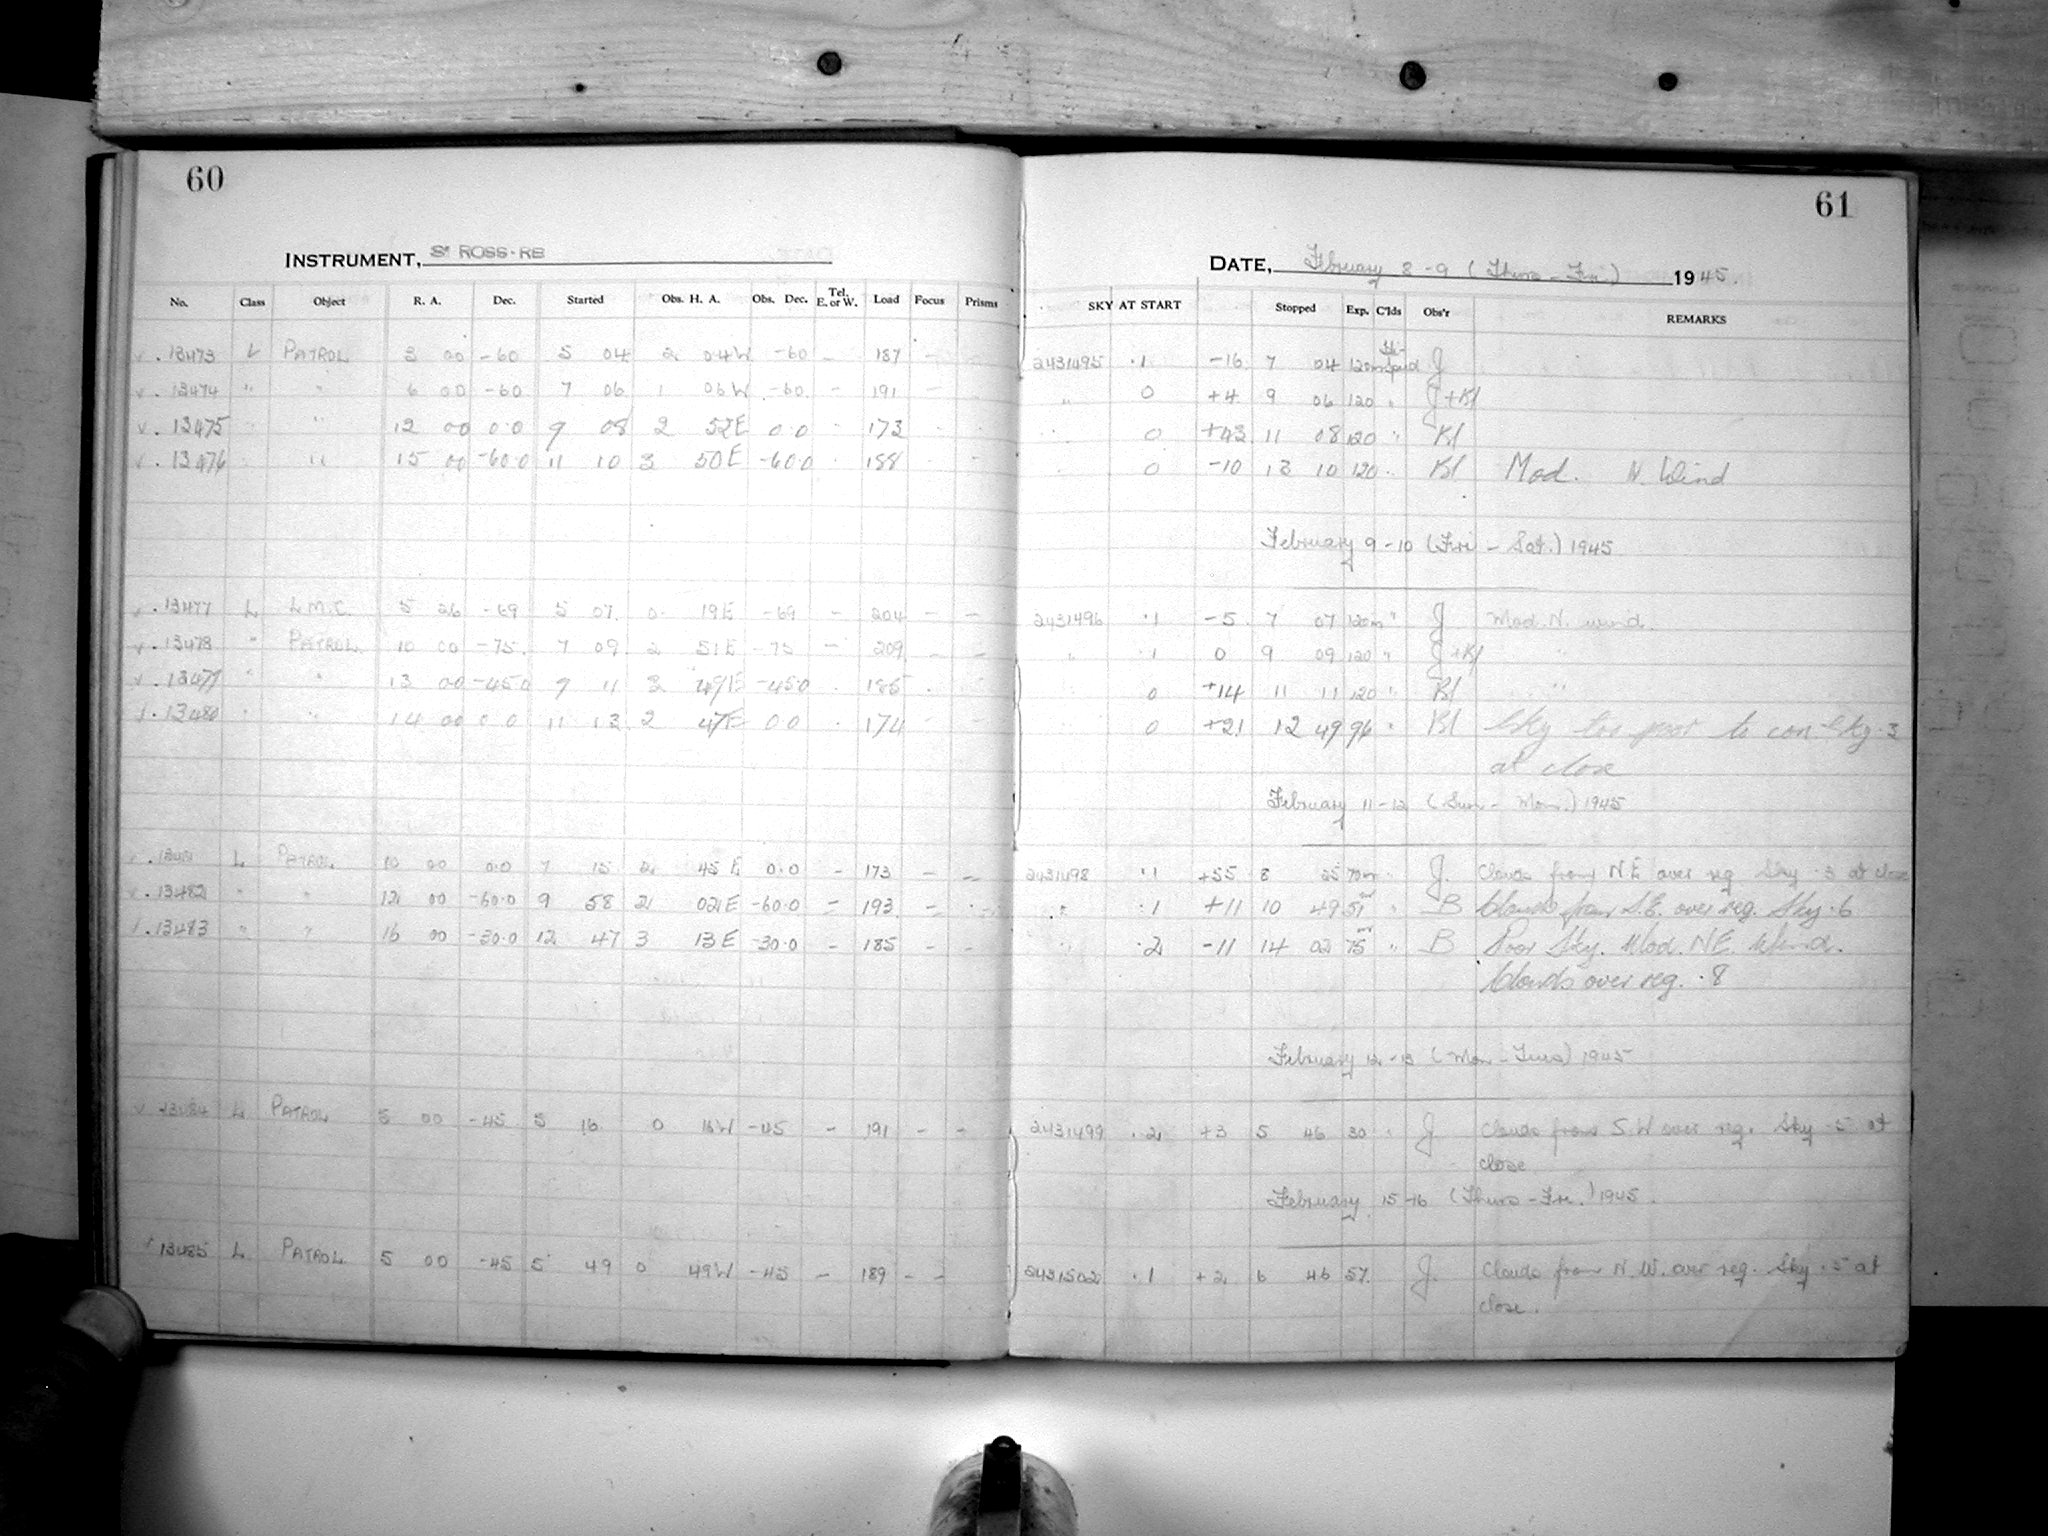 60
INSTRUMENT, 3" ROSS-RB
No. Class Object R. A. Dec. Started Obs. H. A. Obs. Dec. Tel. E. or W. Load Focus Prisms
13473 L PATROL 3 00 -60 5 04 2 04W -60 - 187 - -
13474 " " 6 00 -60 7 06 1 06W -60 - 191 -
13475 " " 12 00 0.0 9 08 2 52E 0.0 173
13476 " " 15 00 -60.0 11 10 3 50E -60.0 188
13477 L L.M.C. 5 26 -69 5 07 0 19E -69 - 204 - -
13478 " PATROL 10 00 -75 7 09 2 51E -75 - 209 - -
13479 " " 13 00 -45.0 9 11 3 49E -45.0 185
13480 " " 14 00 0.0 11 13 2 47E 0.0 174
L PATROL 10 00 0.0 7 15 2 45E 0.0 - 173 - -
13482 " " 12 00 -60.0 9 58 2 02E -60.0 - 193 - -
13483 " " 16 00 -30.0 12 47 3 13E -30.0 - 185 - -
13484 L PATROL 5 00 -45 5 16 0 16W -45 - 191 - -
13485 L PATROL 5 00 -45 5 49 0 49W -45 - 189 - -
61
DATE, February 8-9 (Thurs-Fri.) 1945.
SKY AT START Stopped Exp. C'lds Obs'r REMARKS
2431495 .1 -16 7 04 120m J
" 0 +4 9 06 120 " J+Bl
0 +43 11 08 120 " Bl
0 -10 13 10 120 " Bl Mod. N. Wind
February 9-10 (Fri - Sat.) 1945
2431496 .1 -5 7 07 120m " J Mod. N. wind.
" .1 0 9 09 120 " J+Bl "
0 +14 11 11 120 " Bl "
0 +21 12 49 96 " Bl Sky too poor to con- Sky .3
at close
February 11-12 (Sun - Mon.) 1945
2431498 .1 +55 8 25 70m J. Clouds from NE over reg Sky .3 at close
" .1 +11 10 49 51m " B Clouds from S.E. over reg. Sky .6
" .2 -11 14 02 75m " B Poor Sky. Mod. NE Wind.
Clouds over reg. .8
February 12-13 (Mon-Tues) 1945
2431499 .2 +3 5 46 30 " J. Clouds from S.W over reg. Sky .5 at
close
February 15-16 (Thurs-Fri.) 1945.
2431502 .1 +2 6 46 57 J. Clouds from N.W. over reg. Sky .5 at
close.